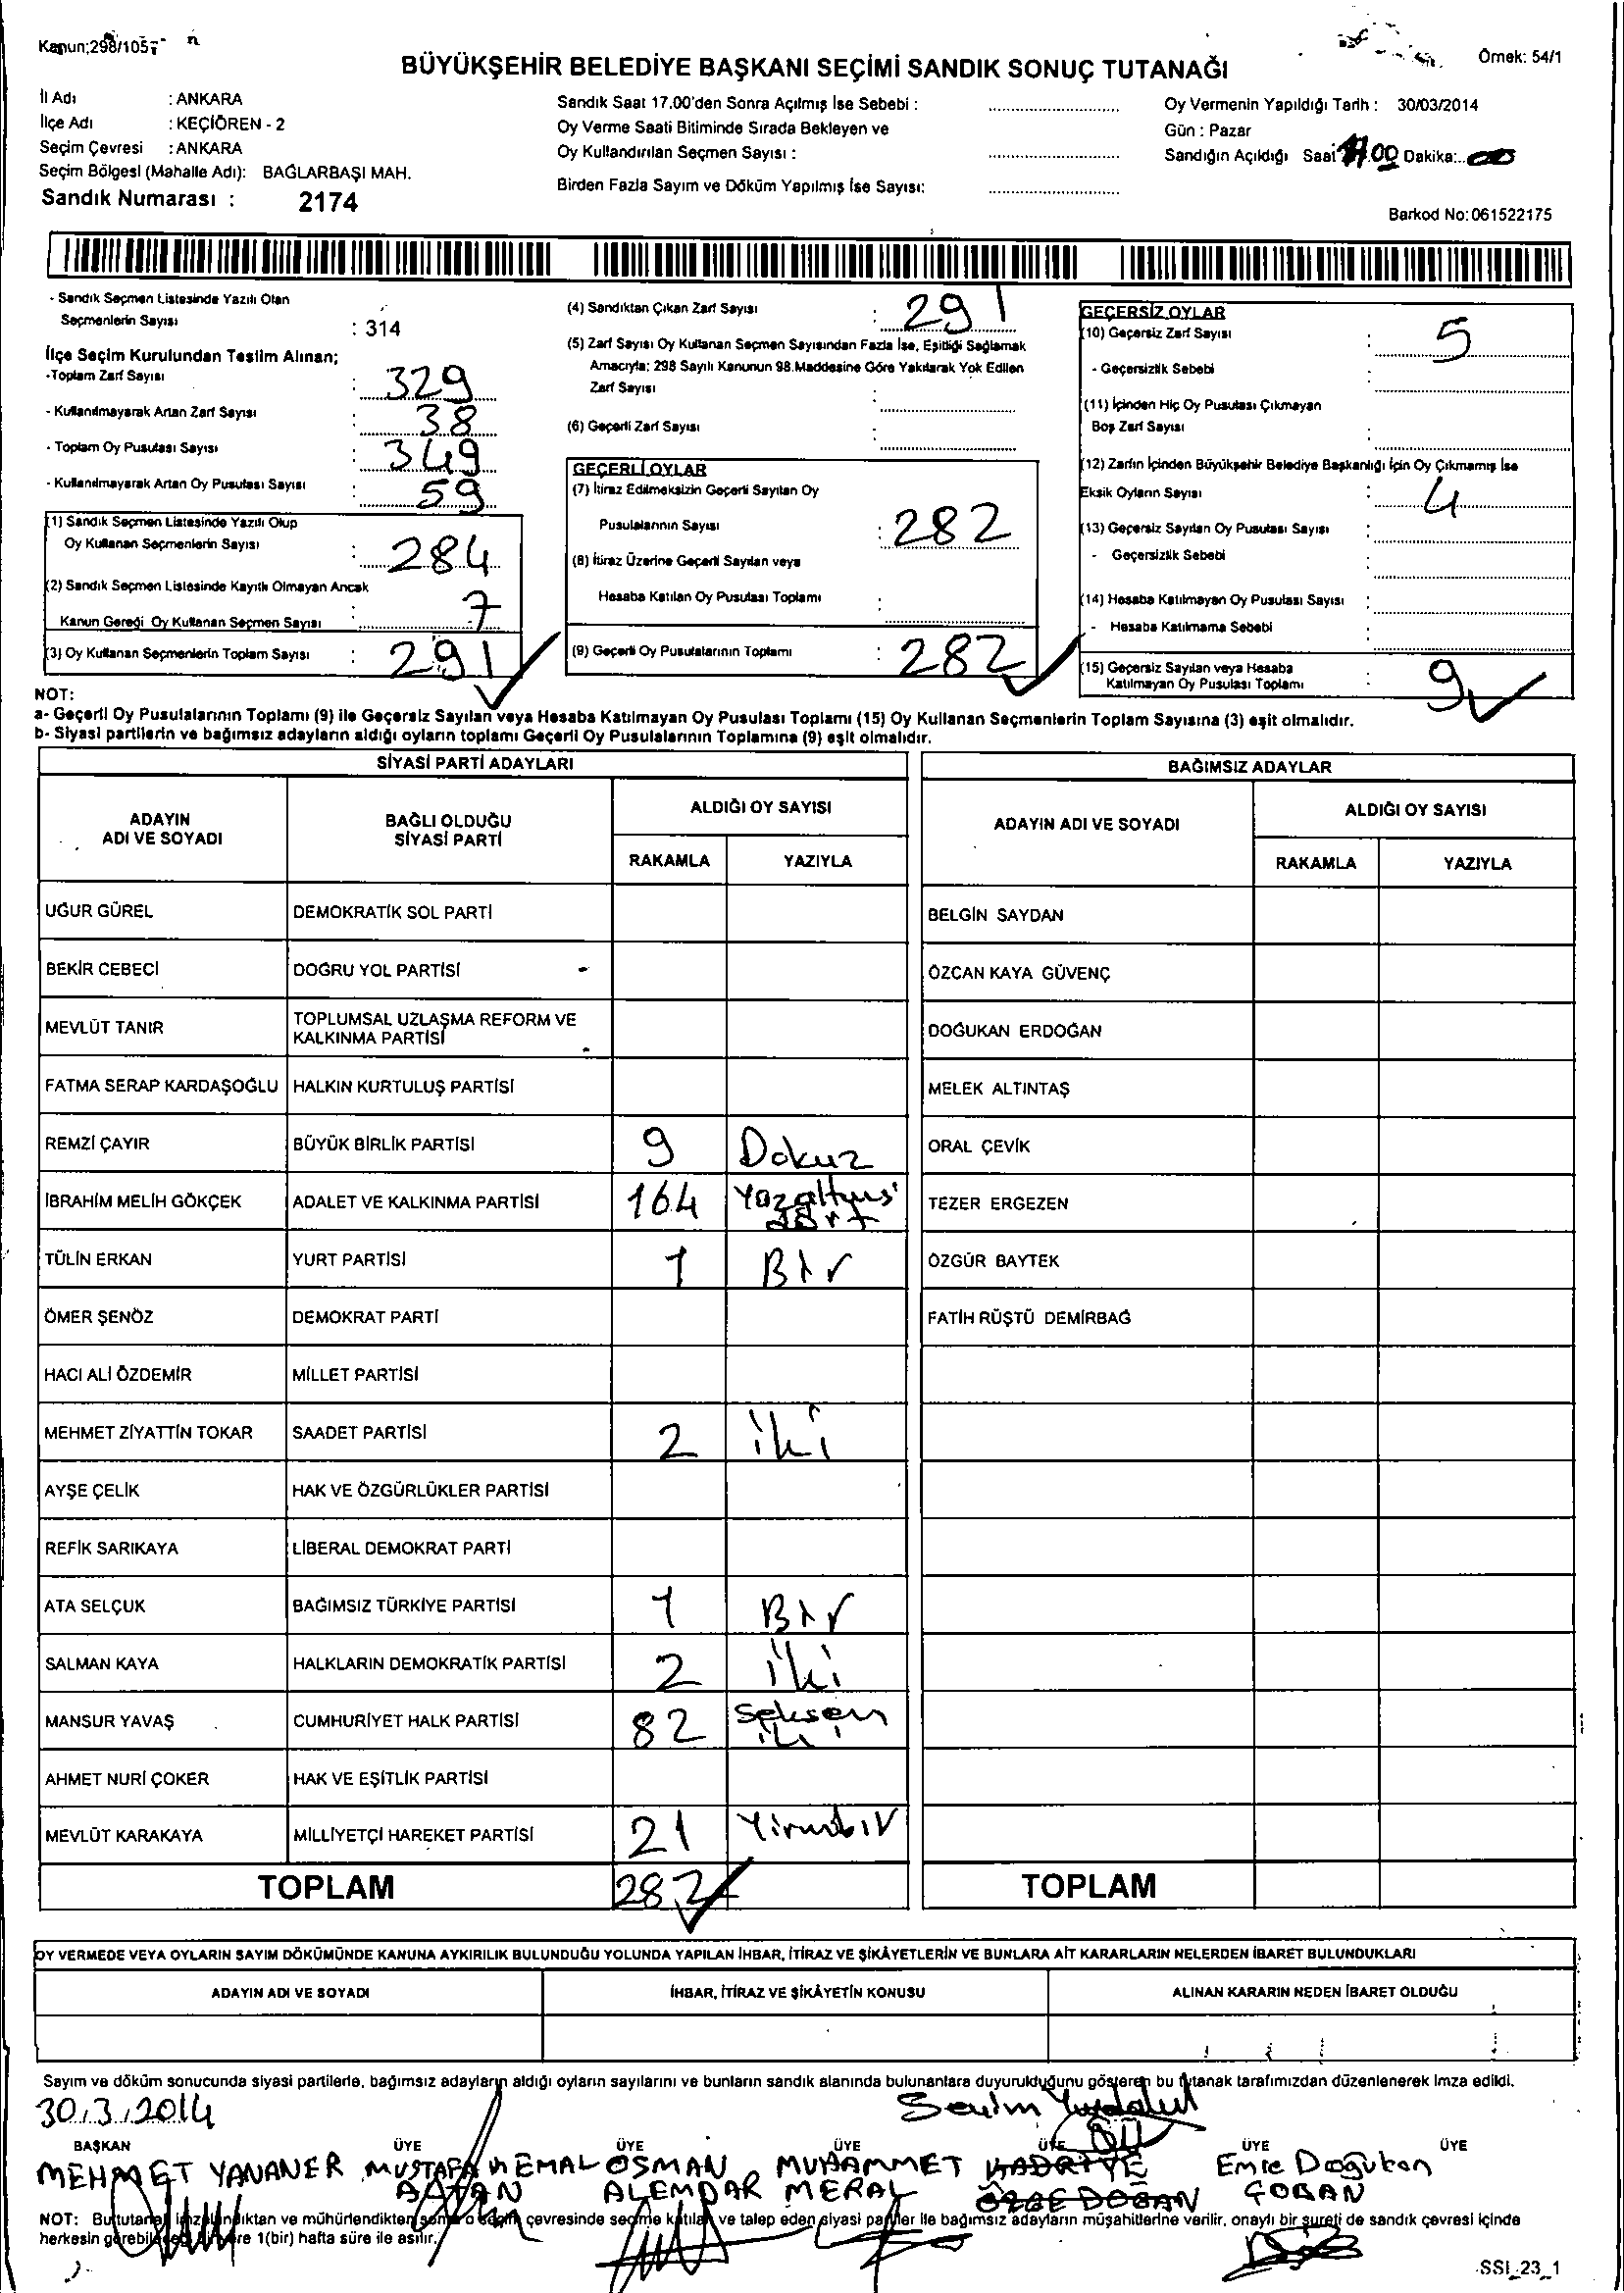 Kanun;298/105
Örnek: 54/1
BÜYÜKŞEHİR BELEDİYE BAŞKANI SEÇİMİ SANDIK SONUÇ TUTANAĞI
İl Adı : ANKARA
İlçe Adı : KEÇİÖREN - 2
Seçim Çevresi : ANKARA
Seçim Bölgesi (Mahalle Adı): BAĞLARBAŞI MAH.
Sandık Numarası : 2174
Sandık Saat 17.00'den Sonra Açılmış İse Sebebi :
Oy Verme Saati Bitiminde Sırada Bekleyen ve
Oy Kullandırılan Seçmen Sayısı :
Birden Fazla Sayım ve Döküm Yapılmış İse Sayısı:
Oy Vermenin Yapıldığı Tarih : 30/03/2014
Gün : Pazar
Sandığın Açıldığı Saat Dakika:
Barkod No:061522175
- Sandık Seçmen Listesinde Yazılı Olan
Seçmenlerin Sayısı : 314
İlçe Seçim Kurulundan Teslim Alınan;
-Toplam Zarf Sayısı : 329
- Kullanılmayarak Artan Zarf Sayısı : 38
- Toplam Oy Pusulası Sayısı : 349
- Kullanılmayarak Artan Oy Pusulası Sayısı : 59
(1) Sandık Seçmen Listesinde Yazılı Olup
Oy Kullanan Seçmenlerin Sayısı : 284
(2) Sandık Seçmen Listesinde Kayıtlı Olmayan Ancak
Kanun Gereği Oy Kullanan Seçmen Sayısı : 7
(3) Oy Kullanan Seçmenlerin Toplam Sayısı : 291
(4) Sandıktan Çıkan Zarf Sayısı : 291
(5) Zarf Sayısı Oy Kullanan Seçmen Sayısından Fazla İse, Eşitliği Sağlamak
Amacıyla; 298 Sayılı Kanunun 98.Maddesine Göre Yakılarak Yok Edilen
Zarf Sayısı :
(6) Geçerli Zarf Sayısı :
GEÇERLİ OYLAR
(7) İtiraz Edilmeksizin Geçerli Sayılan Oy
Pusulalarının Sayısı : 282
(8) İtiraz Üzerine Geçerli Sayılan veya
Hesaba Katılan Oy Pusulası Toplamı :
(9) Geçerli Oy Pusulalarının Toplamı : 282
GEÇERSİZ OYLAR
(10) Geçersiz Zarf Sayısı : 5
- Geçersizlik Sebebi :
(11) İçinden Hiç Oy Pusulası Çıkmayan
Boş Zarf Sayısı :
(12) Zarfın İçinden Büyükşehir Belediye Başkanlığı İçin Oy Çıkmamış İse
Eksik Oyların Sayısı : 4
(13) Geçersiz Sayılan Oy Pusulası Sayısı :
- Geçersizlik Sebebi :
(14) Hesaba Katılmayan Oy Pusulası Sayısı :
- Hesaba Katılmama Sebebi :
(15) Geçersiz Sayılan veya Hesaba
Katılmayan Oy Pusulası Toplamı : 9
NOT:
a- Geçerli Oy Pusulalarının Toplamı (9) ile Geçersiz Sayılan veya Hesaba Katılmayan Oy Pusulası Toplamı (15) Oy Kullanan Seçmenlerin Toplam Sayısına (3) eşit olmalıdır.
b- Siyasi partilerin ve bağımsız adayların aldığı oyların toplamı Geçerli Oy Pusulalarının Toplamına (9) eşit olmalıdır.
SİYASİ PARTİ ADAYLARI
ADAYIN ADI VE SOYADI
BAĞLI OLDUĞU SİYASİ PARTİ
ALDIĞI OY SAYISI
RAKAMLA YAZIYLA
UĞUR GÜREL DEMOKRATİK SOL PARTİ
BEKİR CEBECİ DOĞRU YOL PARTİSİ
MEVLÜT TANIR TOPLUMSAL UZLAŞMA REFORM VE KALKINMA PARTİSİ
FATMA SERAP KARDAŞOĞLU HALKIN KURTULUŞ PARTİSİ
REMZİ ÇAYIR BÜYÜK BİRLİK PARTİSİ 9 Dokuz
İBRAHİM MELİH GÖKÇEK ADALET VE KALKINMA PARTİSİ 164 Yüzaltmış dört
TÜLİN ERKAN YURT PARTİSİ 1 Bir
ÖMER ŞENÖZ DEMOKRAT PARTİ
HACI ALİ ÖZDEMİR MİLLET PARTİSİ
MEHMET ZİYATTİN TOKAR SAADET PARTİSİ 2 iki
AYŞE ÇELİK HAK VE ÖZGÜRLÜKLER PARTİSİ
REFİK SARIKAYA LİBERAL DEMOKRAT PARTİ
ATA SELÇUK BAĞIMSIZ TÜRKİYE PARTİSİ 1 Bir
SALMAN KAYA HALKLARIN DEMOKRATİK PARTİSİ 2 iki
MANSUR YAVAŞ CUMHURİYET HALK PARTİSİ 82 Seksen iki
AHMET NURİ ÇOKER HAK VE EŞİTLİK PARTİSİ
MEVLÜT KARAKAYA MİLLİYETÇİ HAREKET PARTİSİ 21 Yirmibir
TOPLAM 282
BAĞIMSIZ ADAYLAR
ADAYIN ADI VE SOYADI
ALDIĞI OY SAYISI
RAKAMLA YAZIYLA
BELGİN SAYDAN
ÖZCAN KAYA GÜVENÇ
DOĞUKAN ERDOĞAN
MELEK ALTINTAŞ
ORAL ÇEVİK
TEZER ERGEZEN
ÖZGÜR BAYTEK
FATİH RÜŞTÜ DEMİRBAĞ
TOPLAM
OY VERMEDE VEYA OYLARIN SAYIM DÖKÜMÜNDE KANUNA AYKIRILIK BULUNDUĞU YOLUNDA YAPILAN İHBAR, İTİRAZ VE ŞİKÂYETLERİN VE BUNLARA AİT KARARLARIN NELERDEN İBARET BULUNDUKLARI
ADAYIN ADI VE SOYADI
İHBAR, İTİRAZ VE ŞİKÂYETİN KONUSU
ALINAN KARARIN NEDEN İBARET OLDUĞU
Sayım ve döküm sonucunda siyasi partilerle, bağımsız adayların aldığı oyların sayılarını ve bunların sandık alanında bulunanlara duyurulduğunu gösteren bu tutanak tarafımızdan düzenlenerek imza edildi.
30.3.2014
BAŞKAN ÜYE ÜYE ÜYE ÜYE ÜYE ÜYE
MEHMET YANANER MUSTAFA KEMAL OSMAN MUHAMMET KADRİYE Emre Doğukan
ALEMDAR MERAL ÖZGE DOĞAN ÇOBAN
NOT: Bu tutanak imzalandıktan ve mühürlendikten sonra o seçim çevresinde seçime katılan ve talep eden siyasi partiler ile bağımsız adayların müşahitlerine verilir, onaylı bir sureti de sandık çevresi içinde
herkesin görebileceği bir yere 1(bir) hafta süre ile asılır.
SSI_23_1